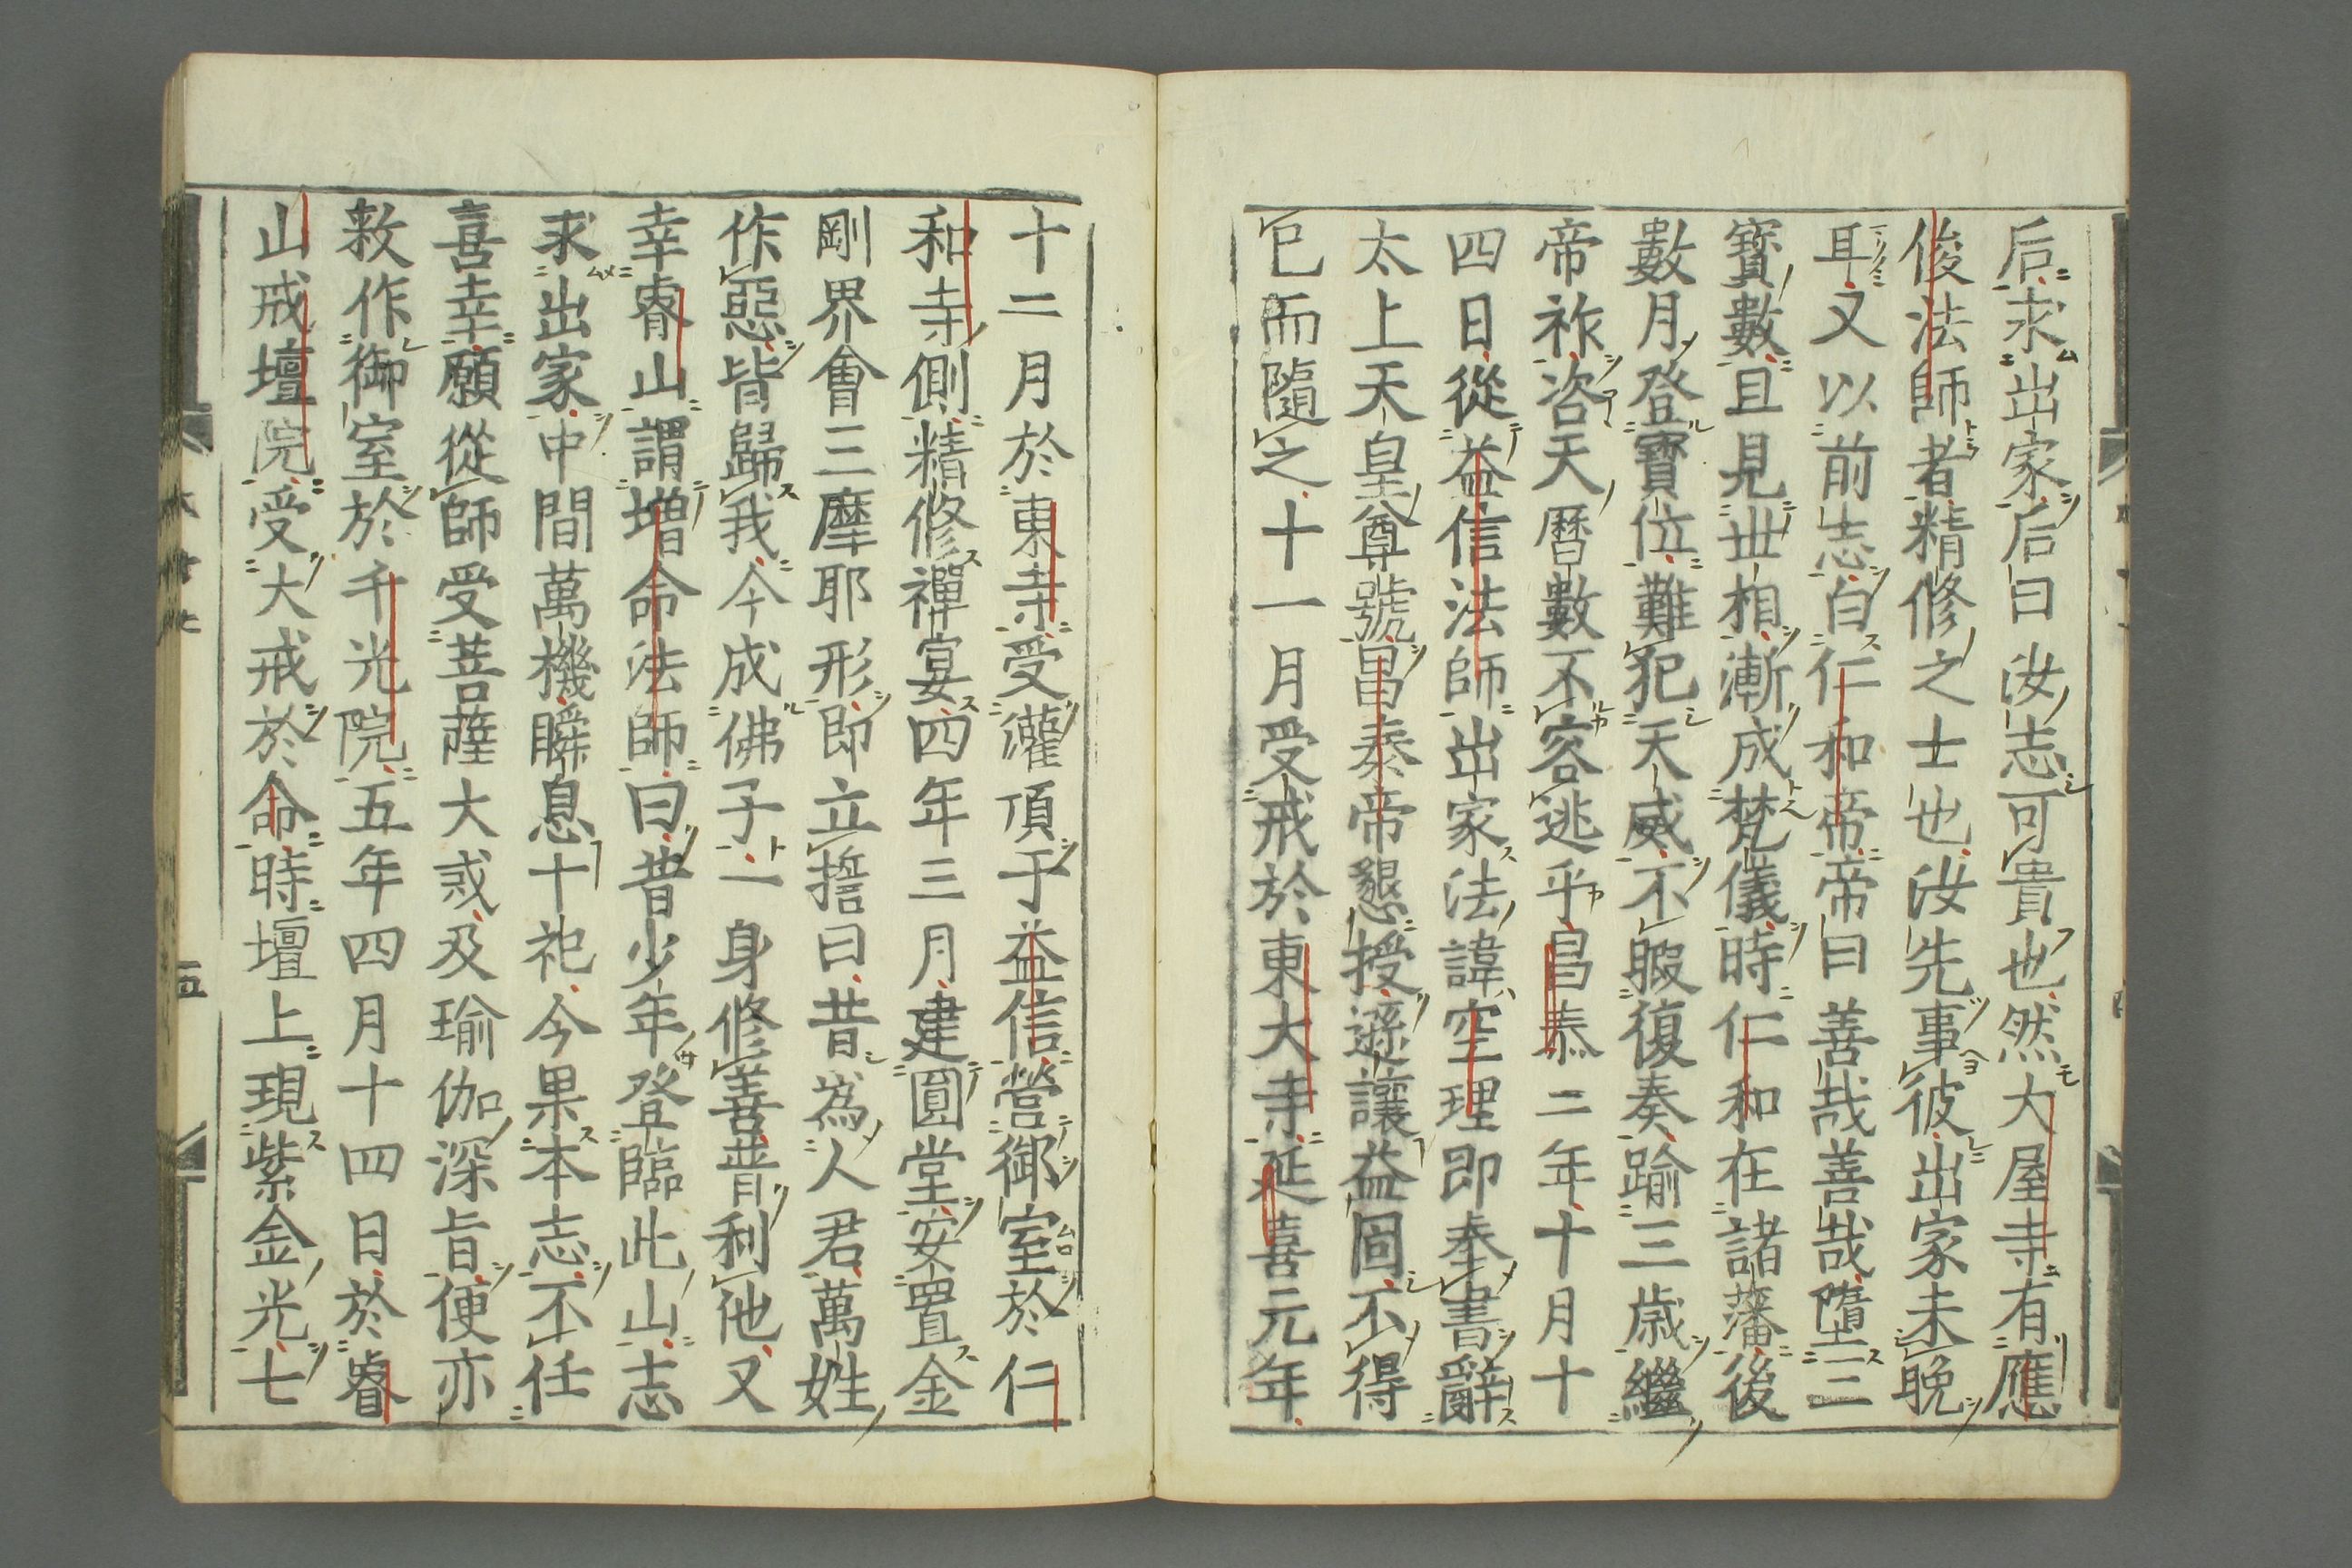 后求出家后曰汝志可貴也然大屋寺有應
俊法師者精修之士也汝先事彼出家未晩
耳又以前志白仁和帝帝曰善哉善哉墮三
寳數數且見丗相漸成梵儀時仁和在諸藩後
數月登寳位難犯天威不暇復奏踰三歳繼
帝祚咨天暦數不容逃乎昌泰二年十月十
四日從益信法師出家法諱空理即奉書辭
太上天皇尊號昌泰帝懇授遜讓益固不得
已而隨之十一月受戒於東大寺延喜元年
十二月於東寺受灌頂于益信營御室於仁
和寺側精修禪宴四年三月建圓堂安置金
剛界會三摩耶形即立誓曰昔爲人君萬姓
作惡皆歸我今成佛子一身修善普利他又
幸睿山謂増命法師曰昔少年登臨此山志
求出家中間萬機瞬息十祀今果本志不任
喜幸願從師受菩薩大戒及瑜伽深旨便亦
敕作御室於千光院五年四月十四日於睿
山戒壇院受大戒於命時壇上現紫金光七
五